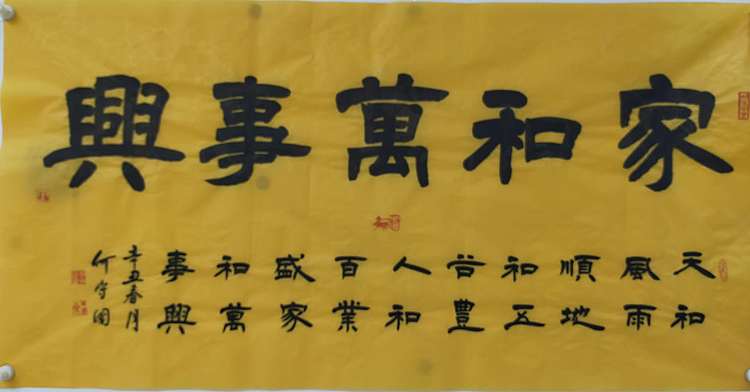 家和萬事興
天和
風雨
順地
和五
谷豊
人和
百業
盛家
和萬
事興
辛丑春月